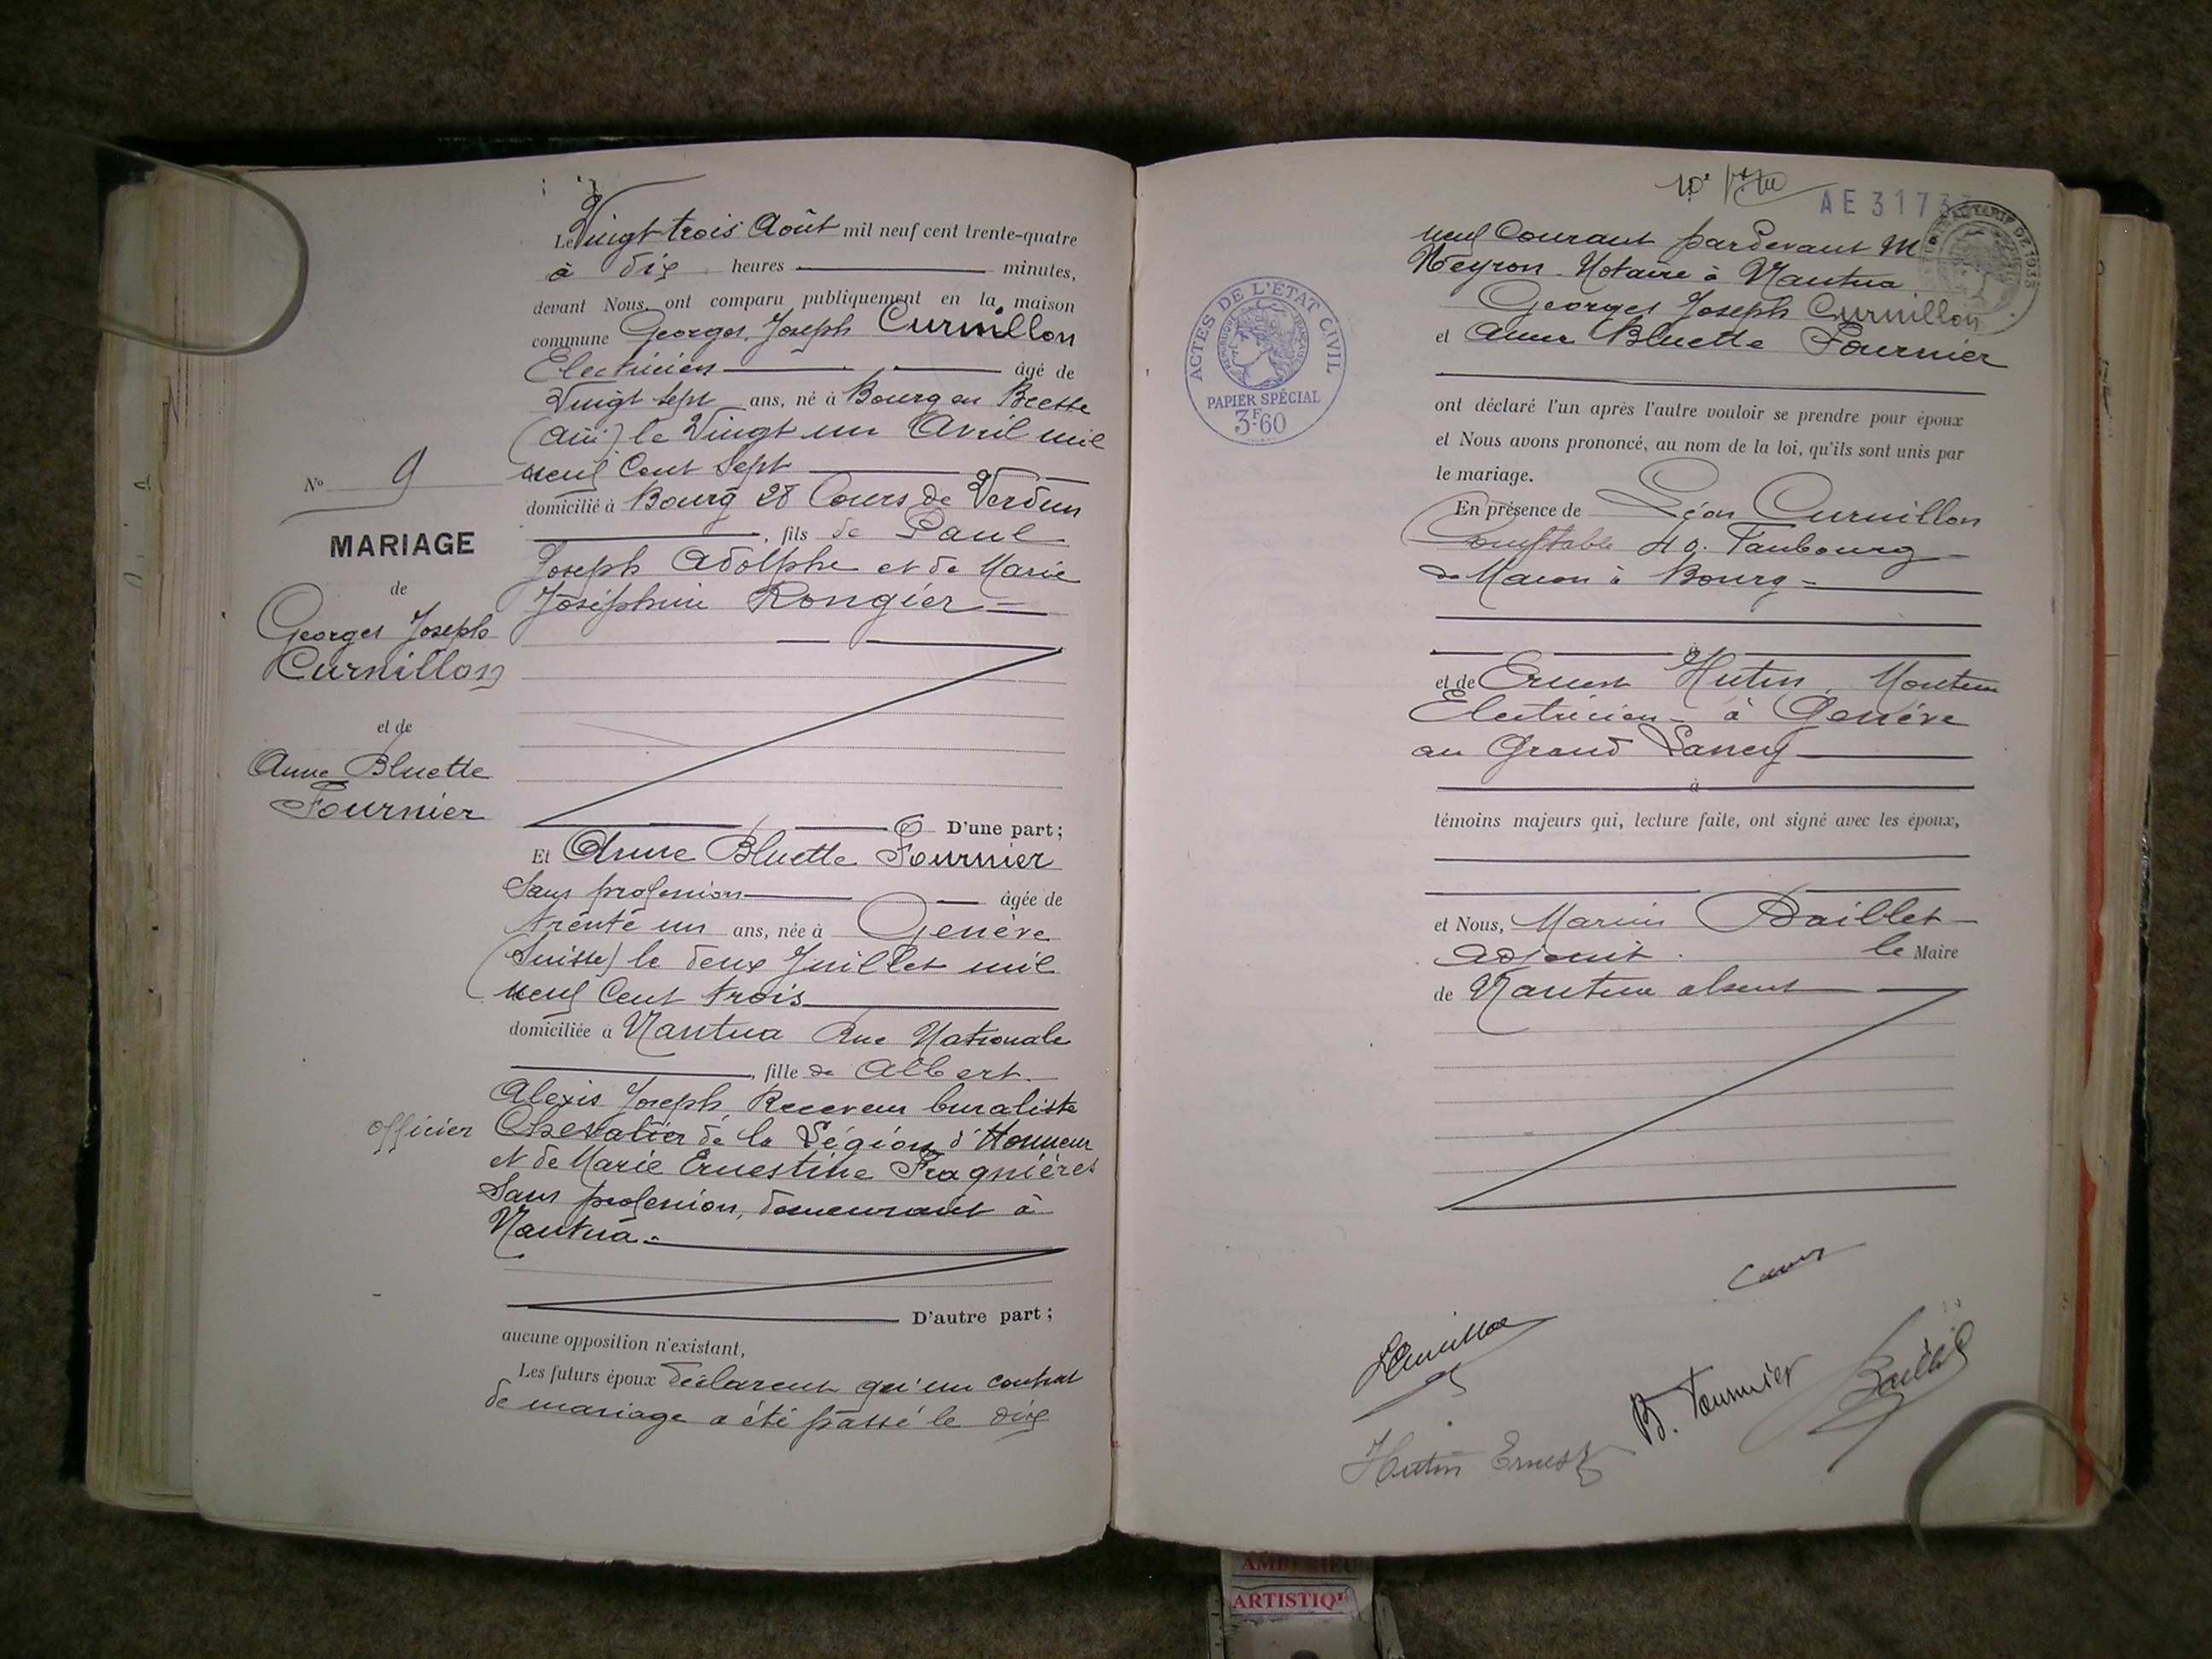 Le Vingt trois Août mil neuf cent trente-quatre
à dix heures minutes,
devant Nous, ont comparu publiquement en la maison
commune Georges Joseph Curnillon
Electricien âgé de
Vingt sept ans, né à Bourg en Bresse
(Ain) le Vingt un Avril mil
neuf Cent Sept
domicilié à Bourg 28 Cours de Verdun
, fils de Paul
Joseph Adolphe et de Marie
Joséphine Rongier
D'une part;
Et Anne Bluette Fournier
Sans profession âgée de
trente un ans, née à Genève
(Suisse) le deux Juillet mil
neuf Cent trois
domiciliée à Nantua Rue Nationale
, fille de Albert
Alexis Joseph Receveur buraliste
officier Chevalier de la Légion d'Honneur
et de Marie Ernestine Fragnières
Sans profession, demeurant à
Nantua.
D'autre part;
aucune opposition n'existant,
Les futurs époux déclarent qu'un contrat
de mariage a été passé le dix
N° 9
MARIAGE
de
Georges Joseph
Curnillon
et de
Anne Bluette
Fournier
AE 3173
neuf Courant pardevant M
Neyron Notaire à Nantua
Georges Joseph Curnillon
et Anne Bluette Fournier
ACTES DE L'ETAT CIVIL
REPUBLIQUE FRANÇAISE
PAPIER SPÉCIAL
3F60
ont déclaré l'un après l'autre vouloir se prendre pour époux
et Nous avons prononcé, au nom de la loi, qu'ils sont unis par
le mariage.
En présence de Léon Curnillon
Comptable 40. Faubourg
de Macon à Bourg
à
et de Ernest Hutin Monteur
Electricien à Genève
au Grand Lancy
à
témoins majeurs qui, lecture faite, ont signé avec les époux,
et Nous, Marius Baillet
adjoint le Maire
de Nantua absent
LCurnillon
B. Fournier
Hutin Ernest
ARTISTIQU